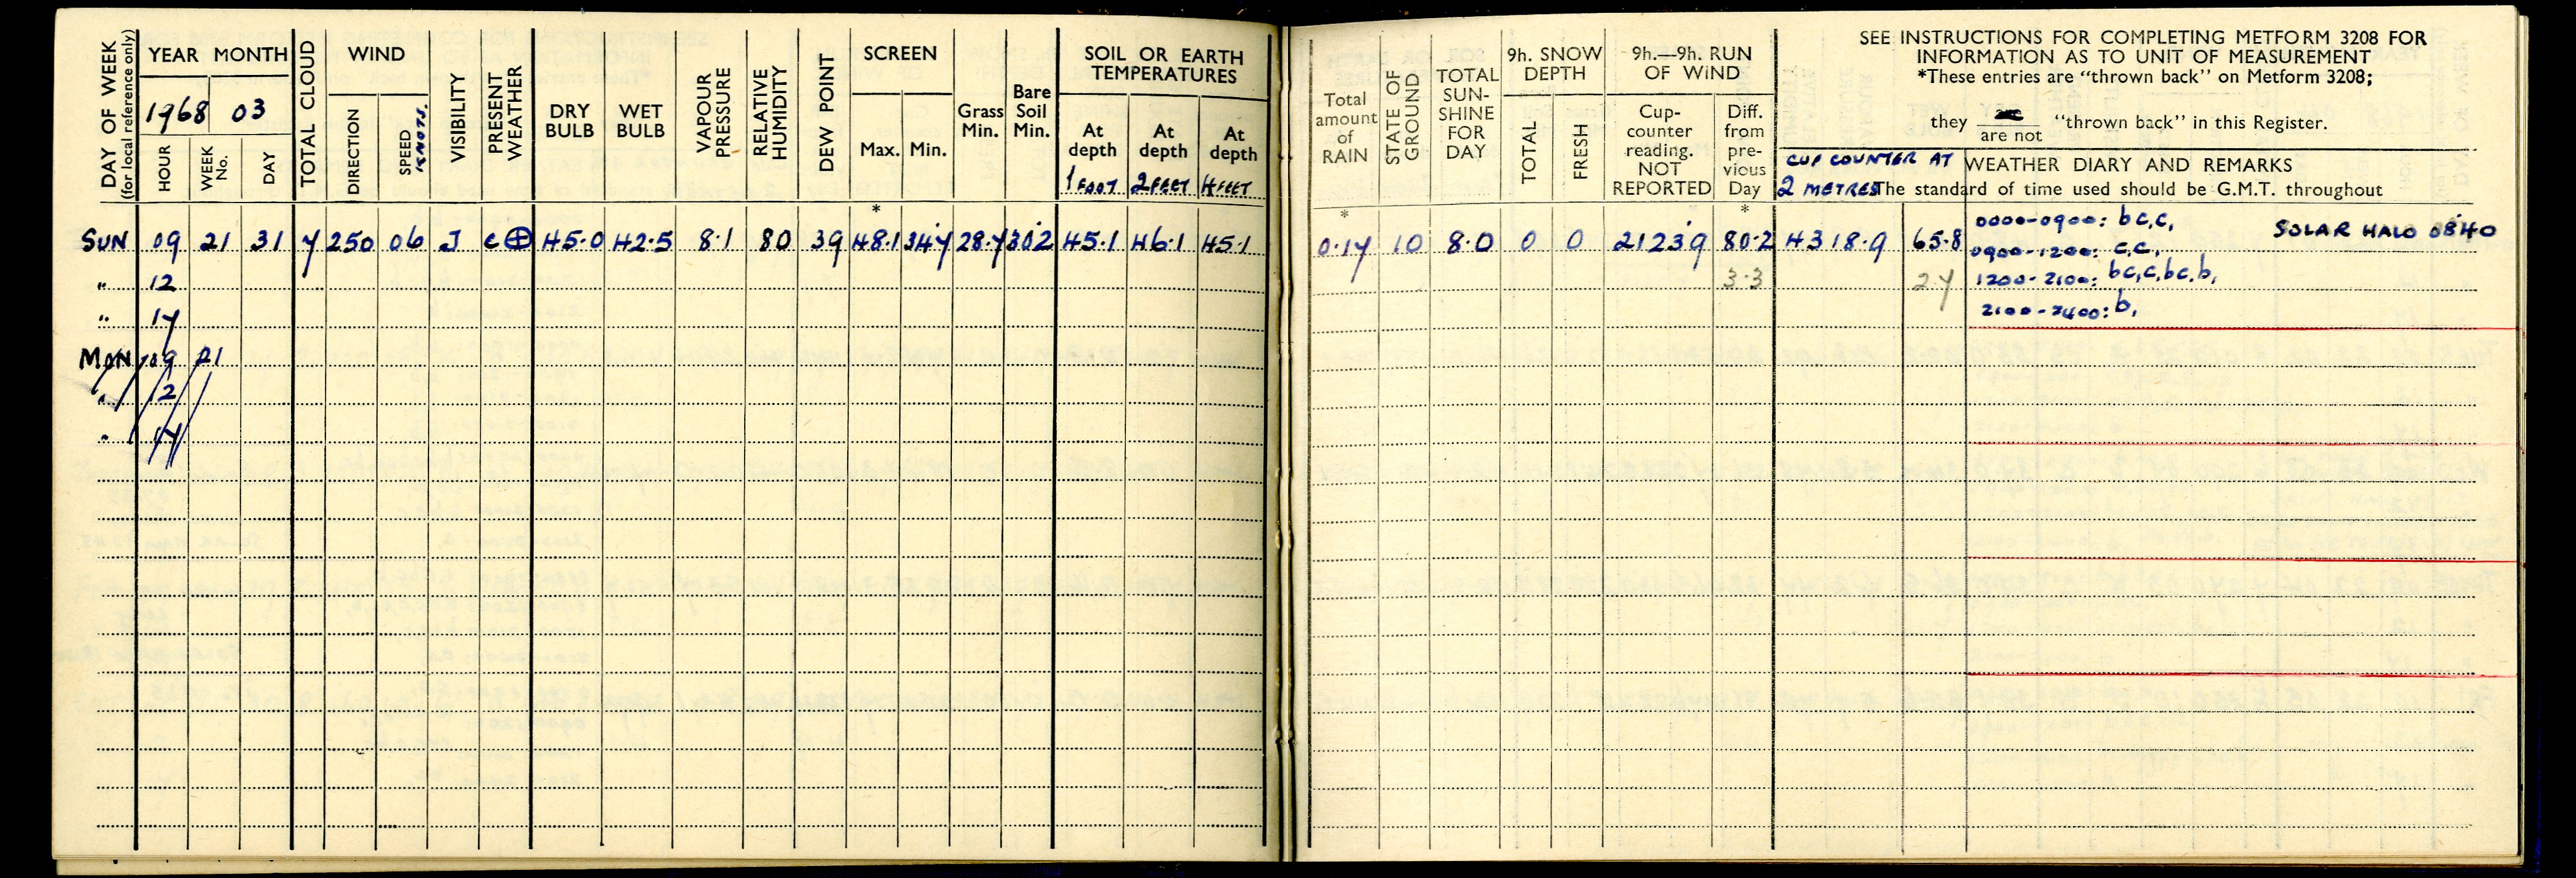 DAY OF WEEK
(for local reference only)
YEAR MONTH
1968 03
HOUR
WEEK No.
DAY
TOTAL CLOUD
WIND
DIRECTION
SPEED KNOTS.
VISIBILITY
PRESENT WEATHER
DRY BULB
WET BULB
VAPOUR PRESSURE
RELATIVE HUMIDITY
DEW POINT
SCREEN
Max. Min.
Grass Min.
Bare Soil Min.
SOIL OR EARTH TEMPERATURES
At depth 1 FOOT
At depth 2 FEET
At depth 4 FEET
Total amount of RAIN
STATE OF GROUND
TOTAL SUN-SHINE FOR DAY
9h. SNOW DEPTH
TOTAL
FRESH
9h.—9h. RUN OF WIND
Cup-counter reading. NOT REPORTED
Diff. from pre-vious Day
SEE INSTRUCTIONS FOR COMPLETING METFORM 3208 FOR
INFORMATION AS TO UNIT OF MEASUREMENT
*These entries are "thrown back" on Metform 3208;
they are / are not "thrown back" in this Register.
CUP COUNTER AT
2 METRES
WEATHER DIARY AND REMARKS
The standard of time used should be G.M.T. throughout
* * *
SUN 09 21 31 7 250 06 J c⊕ 45.0 42.5 8.1 80 39 48.1 34.7 28.7 30.2 45.1 46.1 45.1 0.17 10 8.0 0 0 2123.9 80.2 4318.9 65.8 0000-0900: bc,c, SOLAR HALO 0840
0900-1200: c,c,
" 12 3.3 2.7 1200-2100: bc,c,bc,b,
" 17 2100-2400: b,
MON 09 21
" 12
" 17